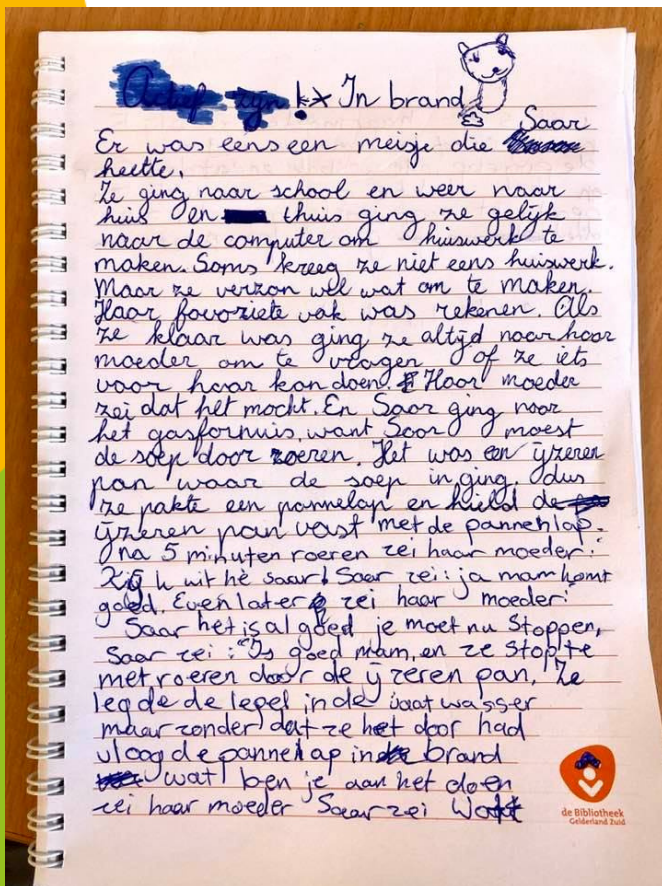 Actief zijn In brand
Er was eens een meisje die Saar
heette.
Ze ging naar school en weer naar
huis en thuis ging ze gelijk
naar de computer om huiswerk te
maken. Soms kreeg ze niet eens huiswerk.
Maar ze verzon wel wat om te maken.
Haar favoriete vak was rekenen. Als
ze klaar was ging ze altijd naar haar
moeder om te vragen of ze iets
voor haar kan doen. Haar moeder
zei dat het mocht. En Saar ging naar
het gasfornuis, want Saar moest
de soep door roeren. Het was een ijzeren
pan waar de soep in ging, dus
ze pakte een pannelap en hield de
ijzeren pan vast met de pannehlap.
na 5 minuten roeren zei haar moeder:
Kijk uit hè saar! Saar zei: ja mam komt
goed. Even later zei haar moeder:
Saar het is al goed je moet nu stoppen,
Saar zei: "Is goed mam, en ze stopte
met roeren door de ijzeren pan. Ze
legde de lepel in de vaatwasser
maar zonder dat ze het door had
vloog de pannelap in brand
wat ben je aan het doen
zei haar moeder Saar zei
de Bibliotheek
Gelderland Zuid